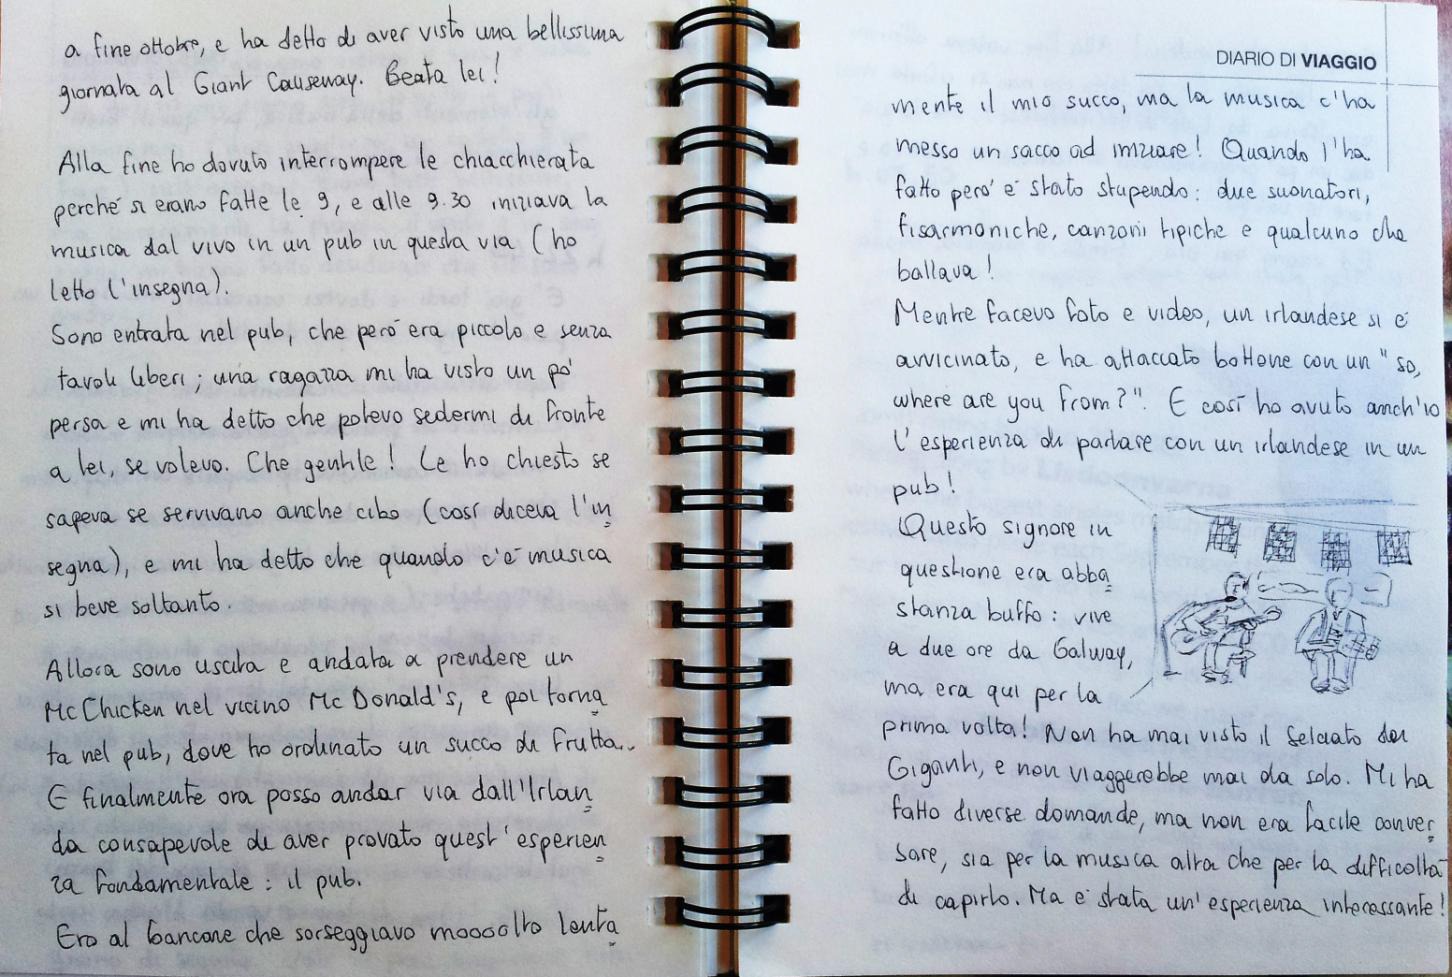 a fine ottobre, e ha detto di aver visto una bellissima
giornata al Giant Causeway. Beata lei!
Alla fine ho dovuto interrompere le chiacchierata
perché si erano fatte le 9, e alle 9.30 iniziava la
musica dal vivo in un pub in questa via (ho
letto l'insegna).
Sono entrata nel pub, che però era piccolo e senza
tavoli liberi; una ragazza mi ha visto un po'
persa e mi ha detto che potevo sedermi di fronte
a lei, se volevo. Che gentile! Le ho chiesto se
sapeva se servivano anche cibo (così diceva l'in
segna), e mi ha detto che quando c'è musica
si beve soltanto.
Allora sono uscita e andata a prendere un
McChicken nel vicino Mc Donald's, e poi torna
ta nel pub, dove ho ordinato un succo di frutta..
E finalmente ora posso andar via dall'Irlan
da consapevole di aver provato quest'esperien
za fondamentale: il pub.
Ero al bancone che sorseggiavo moooolto lenta
DIARIO DI VIAGGIO
mente il mio succo, ma la musica c'ha
messo un sacco ad iniziare! Quando l'ha
fatto però è stato stupendo: due suonatori,
fisarmoniche, canzoni tipiche e qualcuno che
ballava!
Mentre facevo foto e video, un irlandese si è
avvicinato, e ha attaccato bottone con un "so,
where are you from?". E così ho avuto anch'io
l'esperienza di parlare con un irlandese in un
pub!
Questo signore in
questione era abba
stanza buffo: vive
a due ore da Galway,
ma era qui per la
prima volta! Non ha mai visto il Selciato dei
Giganti, e non viaggerebbe mai da solo. Mi ha
fatto diverse domande, ma non era facile conver
sare, sia per la musica alta che per la difficoltà
di capirlo. Ma è stata un'esperienza interessante!